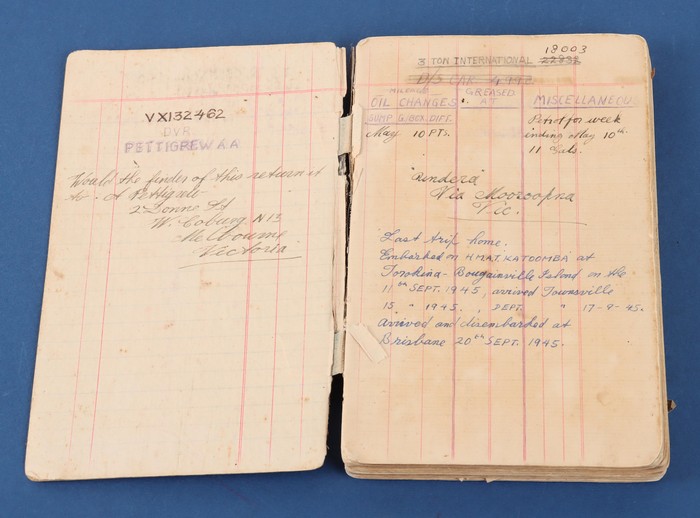 VX132462
DVR
PETTIGREW A A
Would the finder of this return it
to A Pettigrew
2 Donne St
W. Coburg N13
Melbourne
Victoria.
18003
3 TON INTERNATIONAL 22838
D/S CAR
MILEAGE GREASED
OIL CHANGES AT MISCELLANEOU
SUMP G.BOX. DIFF.
May 10 PTS. Petrol for week
ending May 10th.
11 Gals.
"Undera"
Via Mooroopna
Vic.
Last trip home.
Embarked on H.M.A.T. KATOOMBA at
Torokina - Bougainville Island on the
11th SEPT. 1945, arrived Townsville
15 " 1945. , DEPT. " 17-9-45.
Arrived and disembarked at
Brisbane 20th SEPT. 1945.